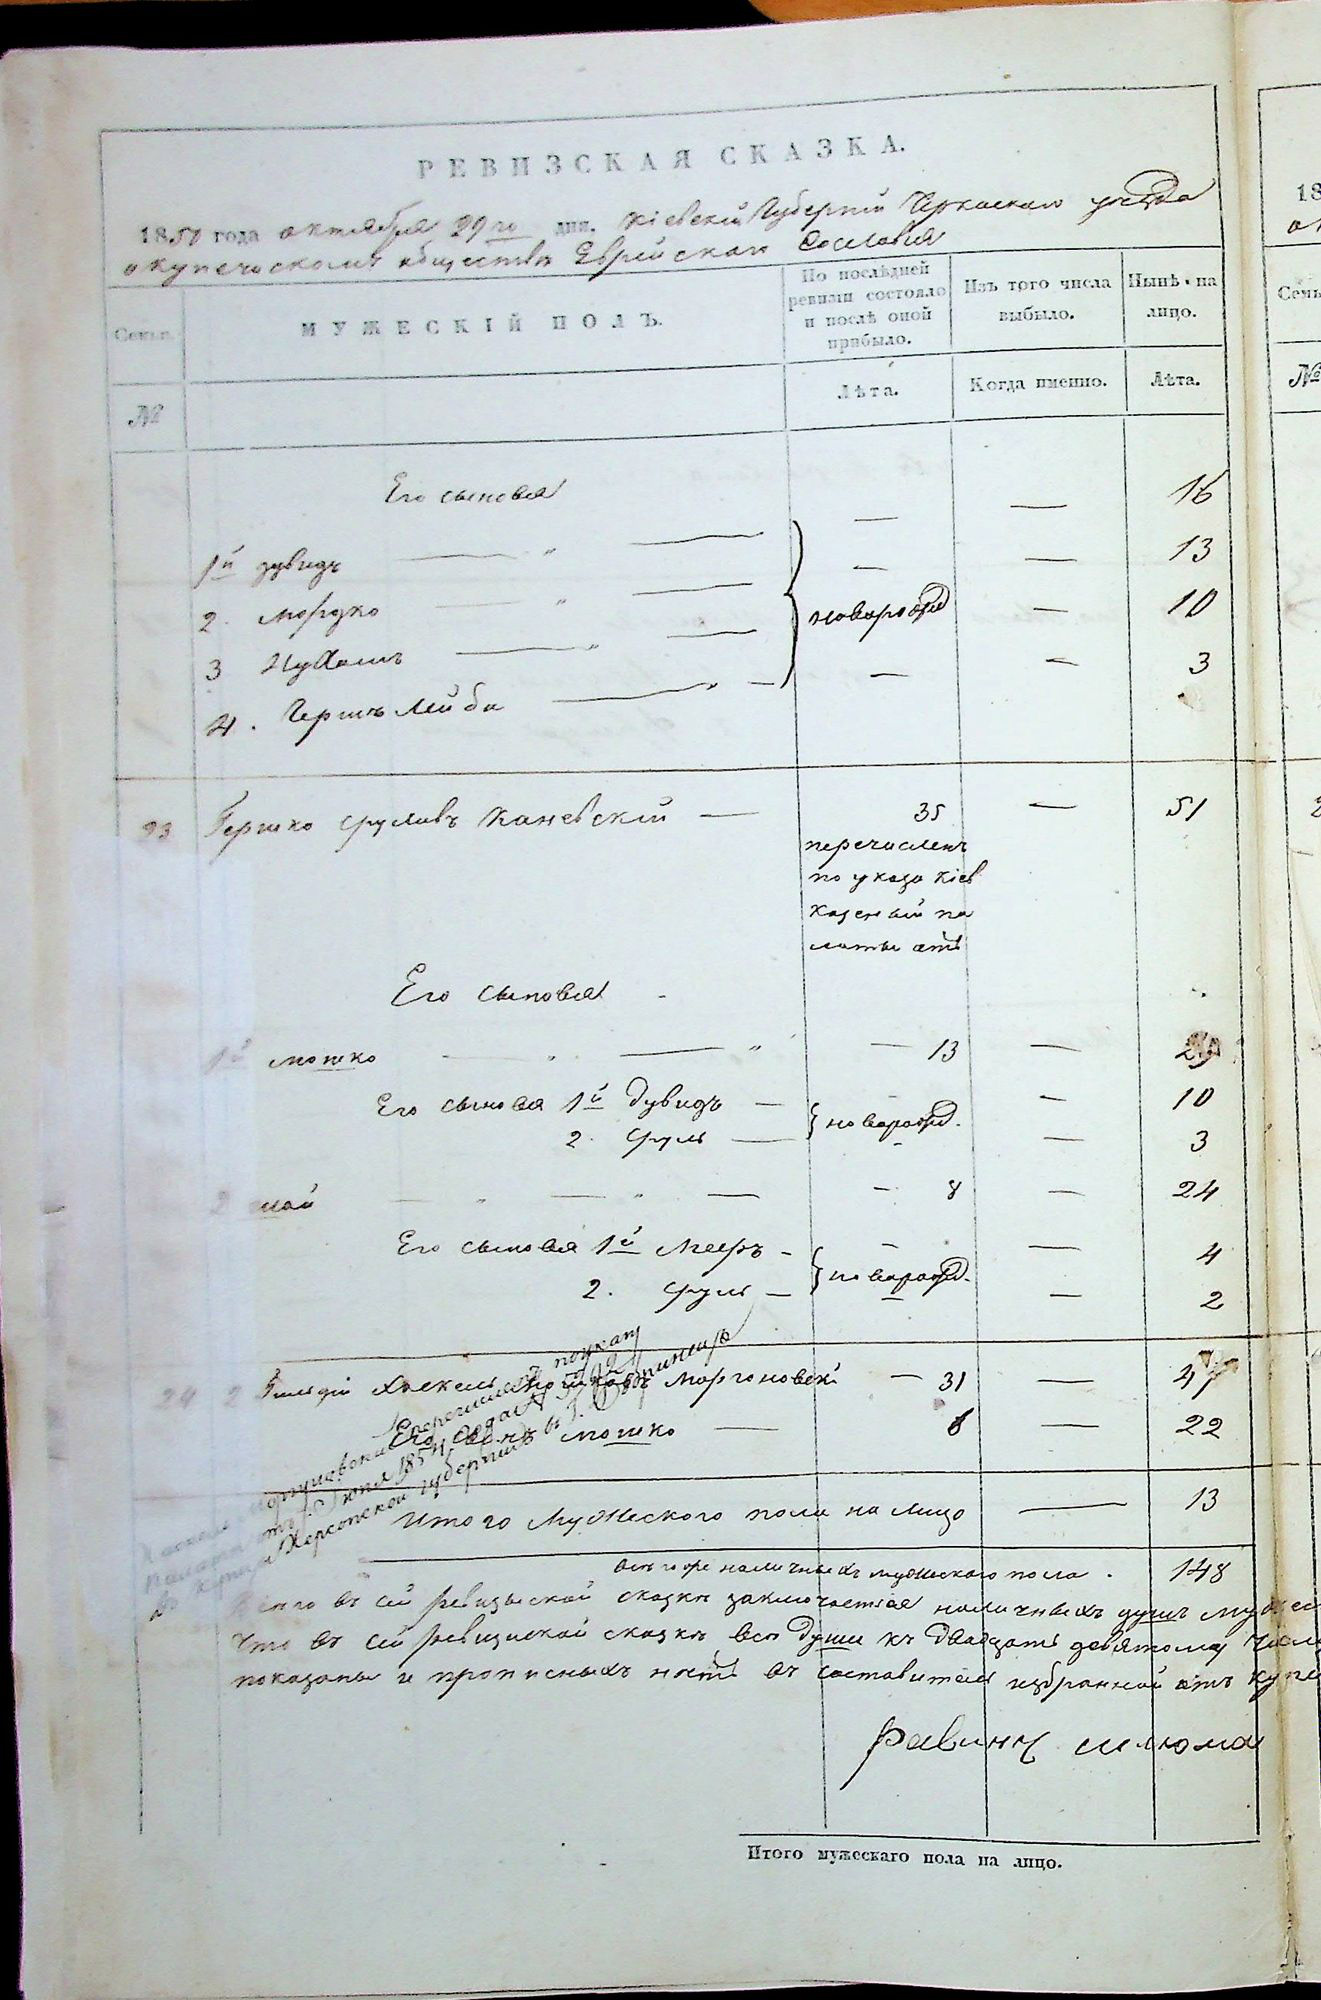 РЕВИЗСКАЯ СКАЗКА.
1850 года октября 29го дня. Кіевской Губерніи Черкаскаго уезда
о купеческомъ обществе Еврейскаго Сословія
Семьи.
МУЖЕСКІЙ ПОЛЪ.
По послѣдней ревизіи состояло и послѣ оной прибыло.
Изъ того числа выбыло.
Нынѣ на лицо.
№
Лѣта.
Когда именно.
Лѣта.
Его сыновья — — 16
1й дувидъ — " — — — 13
2. Мордко — " — новорожд — 10
3 Нухимъ — " — — — 3
4. Гершъ Лейба — " —
23 Гершко Срулевъ Каневскій — 35 — 51
перечисленъ
по указу Кіев
казенной па
латы отъ
Его сыновья
1й мошко — " — " — 13 — 29
Его сыновья 1й Дувидъ — — 10
новорожд.
2. Сруль — — 3
2 — " — " — — 8 — 24
Его сыновья 1й Мееръ - — — 4
новорожд.
2. Сруль — — — 2
24 2 Хаскель — 31 — 47
Его сынъ мошко — 6 — 22
Итого Мужеского пола на лицо — 13
наличныхъ мужеского пола . 148
Всего въ сей ревизской сказке заключается наличныхъ душъ
Что въ сей ревизской сказке все души къ двадцать девятому
показаны и прописныхъ нетъ въ составители избранной отъ
Равинъ шлюма
Итого мужескаго пола на лицо.